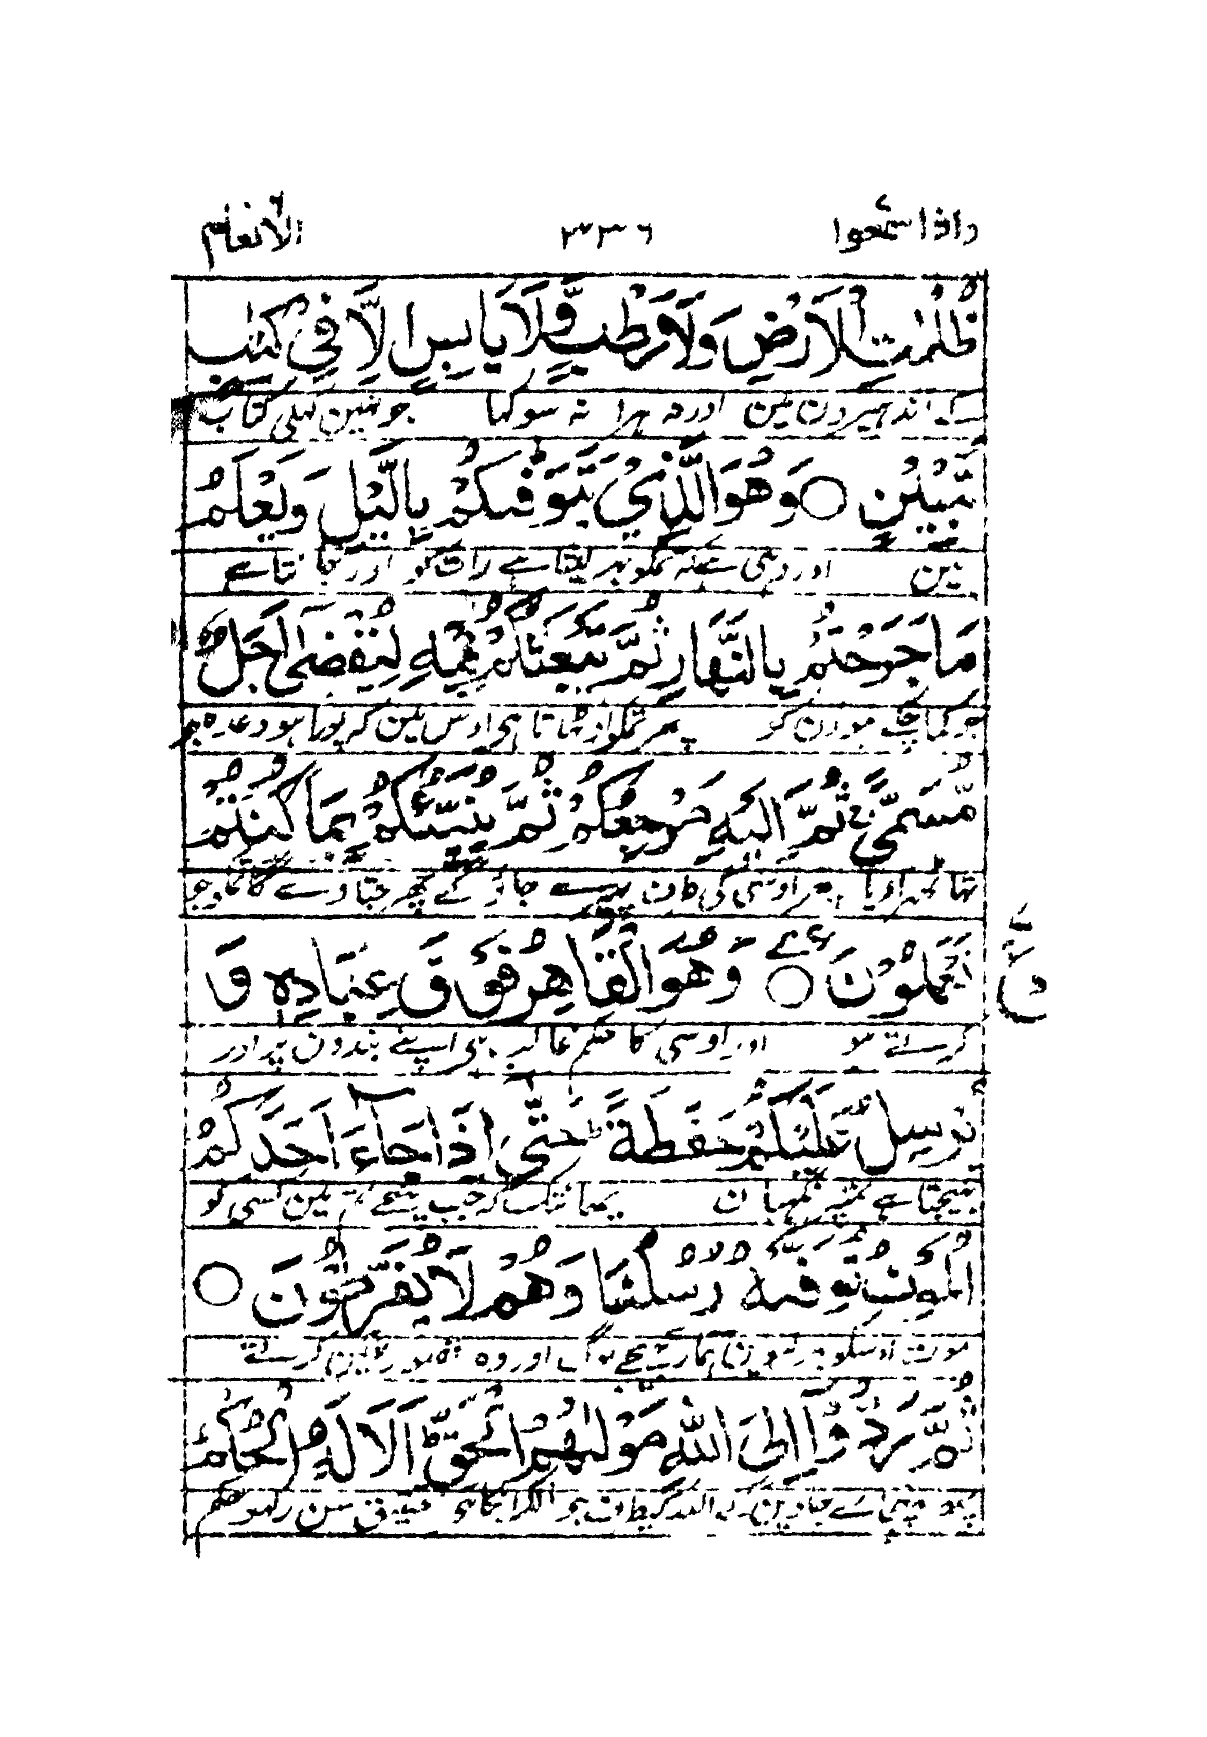 واذا سمعوا ٢٣٦ الانعام
ظُلُمٰتِ الْاَرْضِ وَلَا رَطْبٍ وَّلَا يَابِسٍ اِلَّا فِيْ كِتٰبٍ
کے اندھیرون مین اور نہ ہرا نہ سوکہا جو نہین کہلی کتاب
مُّبِيْنٍ ○ وَهُوَ الَّذِيْ يَتَوَفّٰىكُمْ بِالَّيْلِ وَيَعْلَمُ
مین اور وہی ہے کہ تمکو بہر لیتا ہے رات کو اور جانتا ہے
مَا جَرَحْتُمْ بِالنَّهَارِ ثُمَّ يَبْعَثُكُمْ فِيْهِ لِيُقْضٰى اَجَلٌ
جو کما چکے ہو دن کو پھر تمکو اوٹہاتا ہی اوس مین کہ پورا ہو وعدہ جو
مُّسَمًّى ۚ ثُمَّ اِلَيْهِ مَرْجِعُكُمْ ثُمَّ يُنَبِّئُكُمْ بِمَا كُنْتُمْ
تہا ٹہرا دیا پھر اوسی کی طرف پہیرے جاؤ گے پھر جتا دے گا تمکو جو
تَعْمَلُوْنَ ○ وَهُوَ الْقَاهِرُ فَوْقَ عِبَادِهٖ وَ
کرتے ہو اور اوسی کا حکم غالب ہی اپنے بندون پر اور
يُرْسِلُ عَلَيْكُمْ حَفَظَةً ط حَتّٰى اِذَا جَآءَ اَحَدَكُمُ
بہیجتا ہے تمپر نگہبان یہانتک کہ جب پہنچے تم مین کسی کو
الْمَوْتُ تَوَفَّتْهُ رُسُلُنَا وَهُمْ لَا يُفَرِّطُوْنَ ○
موت اوسکو ہمارے بہیجے لوگ اور وہ قصور نہین کرتے
ثُمَّ رُدُّوْٓا اِلَى اللّٰهِ مَوْلٰىهُمُ الْحَقِّ ط اَلَا لَهُ الْحُكْمُ
پہر پہنچائے جاوین گے اللہ کیطرف جو مالک اونکا ہی تحقیق سن رکہو حکم
ع